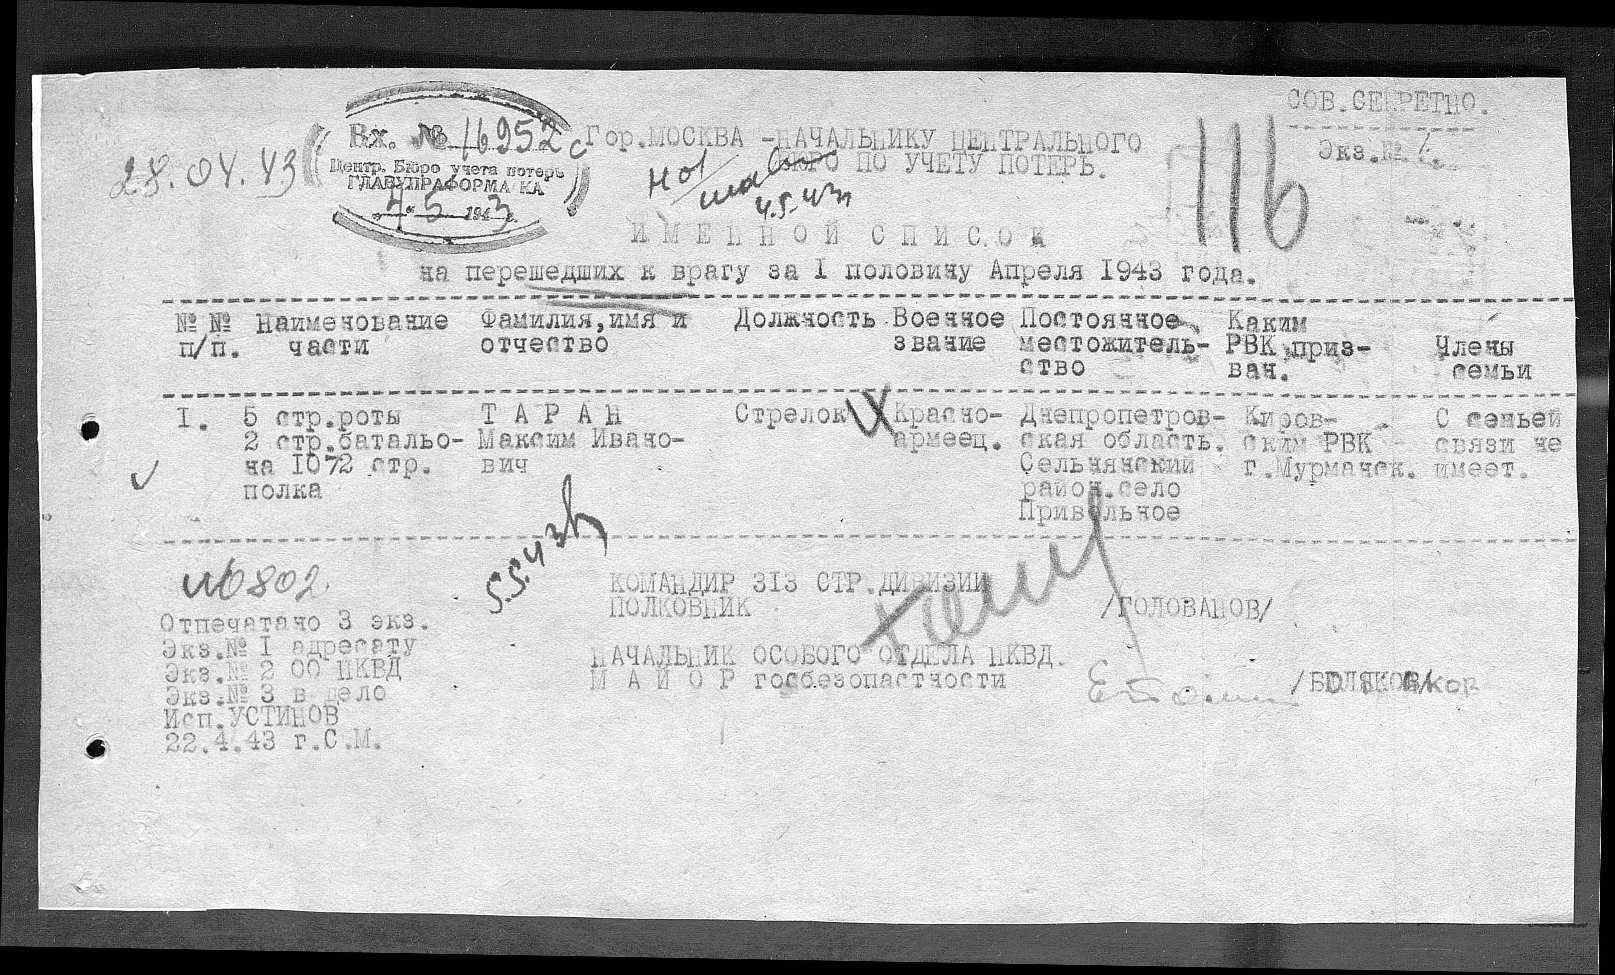 СОВ.СЕКРЕТНО.
Экз.№ 1.
Вх. № 16952с
Центр. Бюро учета потерь
ГЛАВУПРАФОРМА КА
"4" 5 1943 г.
28.04.43
Гор.МОСКВА -НАЧАЛЬНИКУ ЦЕНТРАЛЬНОГО
БЮРО ПО УЧЕТУ ПОТЕРЬ.
4.5.43
116
ИМЕННОЙ СПИСОК
на перешедших к врагу за I половину Апреля 1943 года.
№ № Наименование Фамилия,имя и Должность Военное Постоянное Каким
п/п. части отчество звание местожитель- РВК приз- Члены
ство ван. семьи
I. 5 стр.роты ТАРАН Стрелок Красно- Днепропетров- Киров- С семьей
2 стр.батальо- Максим Ивано- армеец. ская область. ским РВК связи не
на 1072 стр. вич Сельнянский г.Мурманск. имеет.
полка район.село
Привольное
5.5.43
№6802.
КОМАНДИР 313 СТР.ДИВИЗИИ
ПОЛКОВНИК /ГОЛОВАНОВ/
Отпечатано 3 экз.
Экз.№ I адресату
Экз.№ 2 ОО НКВД
Экз.№ 3 в дело
Исп.УСТИНОВ
22.4.43 г.С.М.
НАЧАЛЬНИК ОСОБОГО ОТДЕЛА НКВД.
МАЙОР госбезопастности